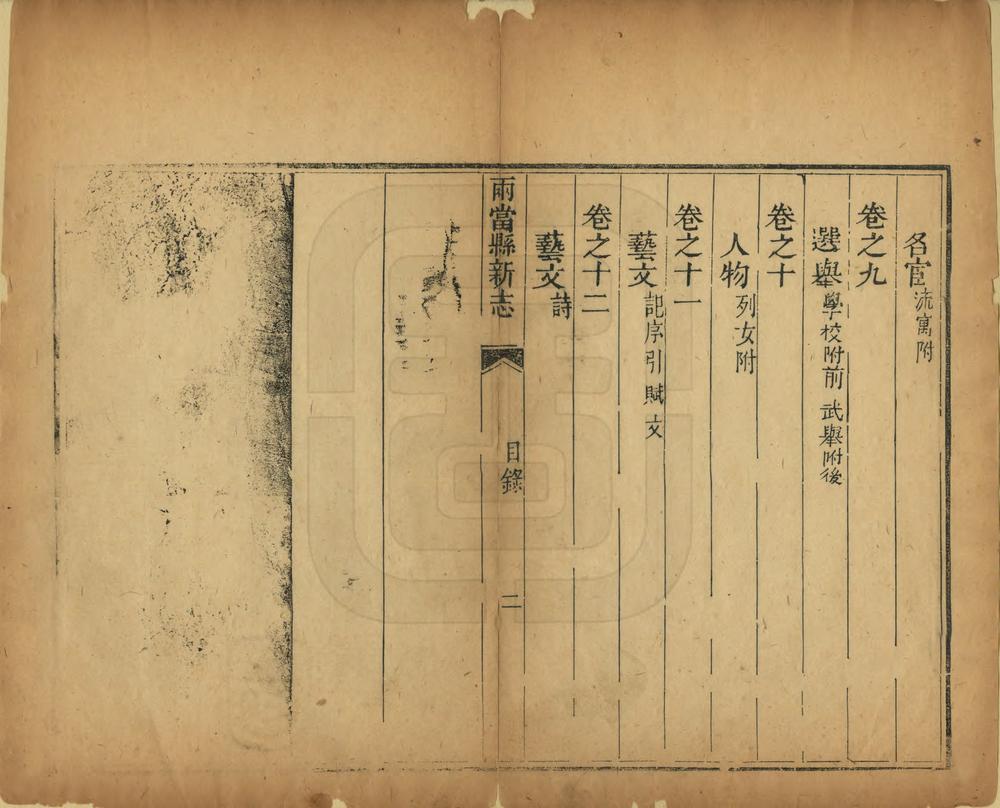 名宦流寓附
卷之九
選舉學校附前 武舉附後
卷之十
人物列女附
卷之十一
藝文記序引賦文
卷之十二
藝文詩
兩當縣新志 目錄 二